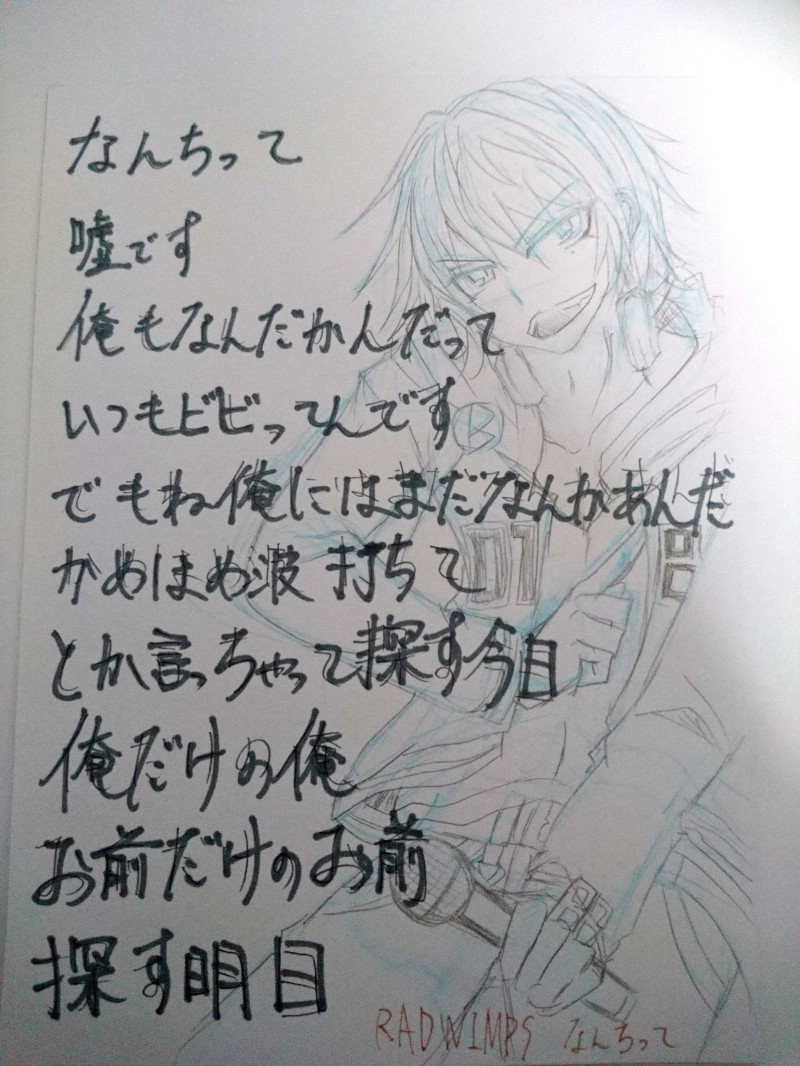 なんちって
嘘です
俺もなんだかんだって
いつもビビってんです
B
でもね俺にはまだなんかあんだ
かめはめ波打ちて
01
とか言っちゃって探す今日
俺だけの俺
お前だけのお前
探す明日
RADWIMPS なんちって